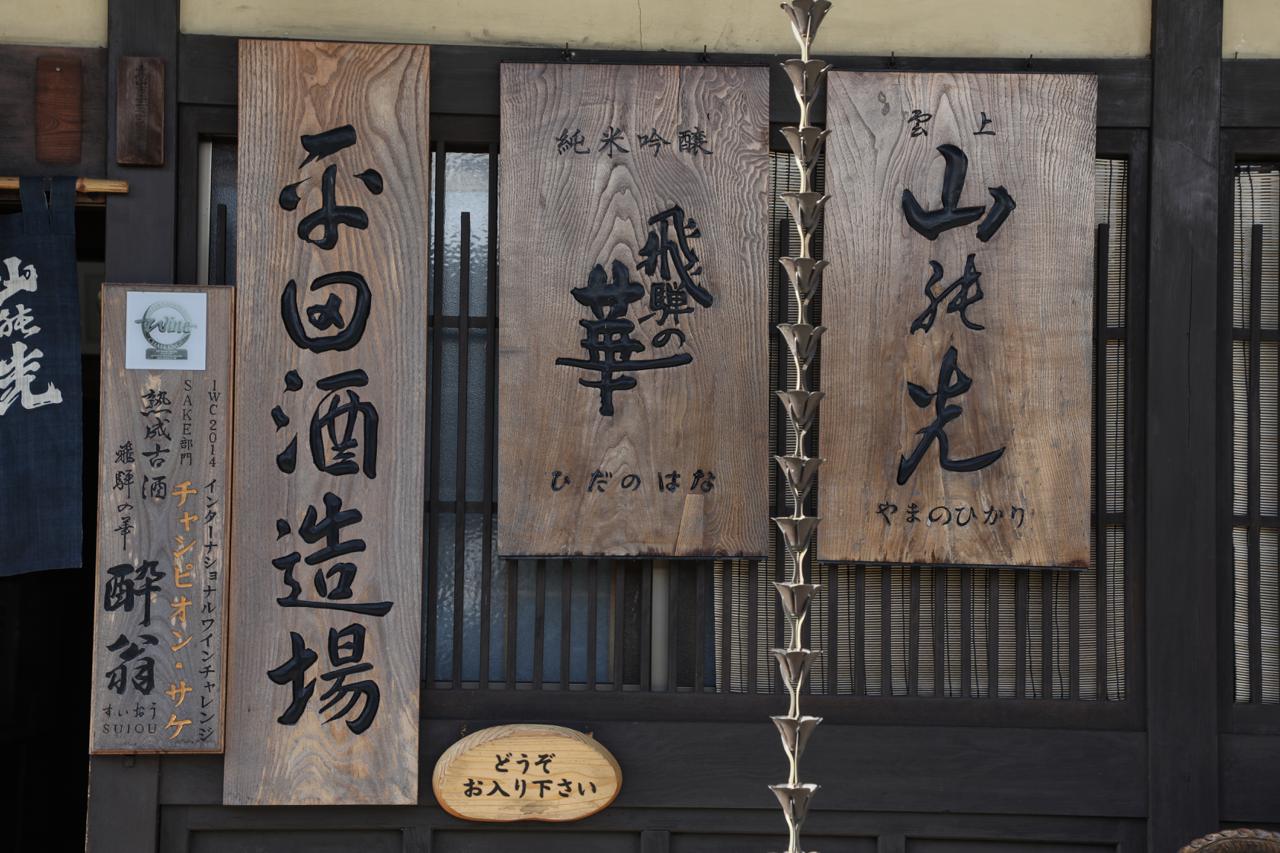 雲上
山乃光
やまのひかり
純米吟醸
飛騨の
華
ひだのはな
平田酒造場
IWC2014 インターナショナルワインチャレンジ
SAKE部門 チャンピオン・サケ
熟成古酒
飛騨の華 酔翁
すいおう
SUIOU
Wine
どうぞ
お入り下さい
山乃光